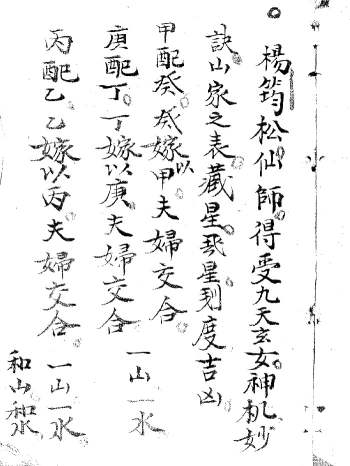 楊筠松仙師得受九天玄女神机妙
訣山家之表藏星飛星到度吉凶
甲配癸癸嫁以甲夫婦交合
庚配丁丁嫁以庚夫婦交合一山一水
丙配乙乙嫁以丙夫婦交合一山一水
和山和水